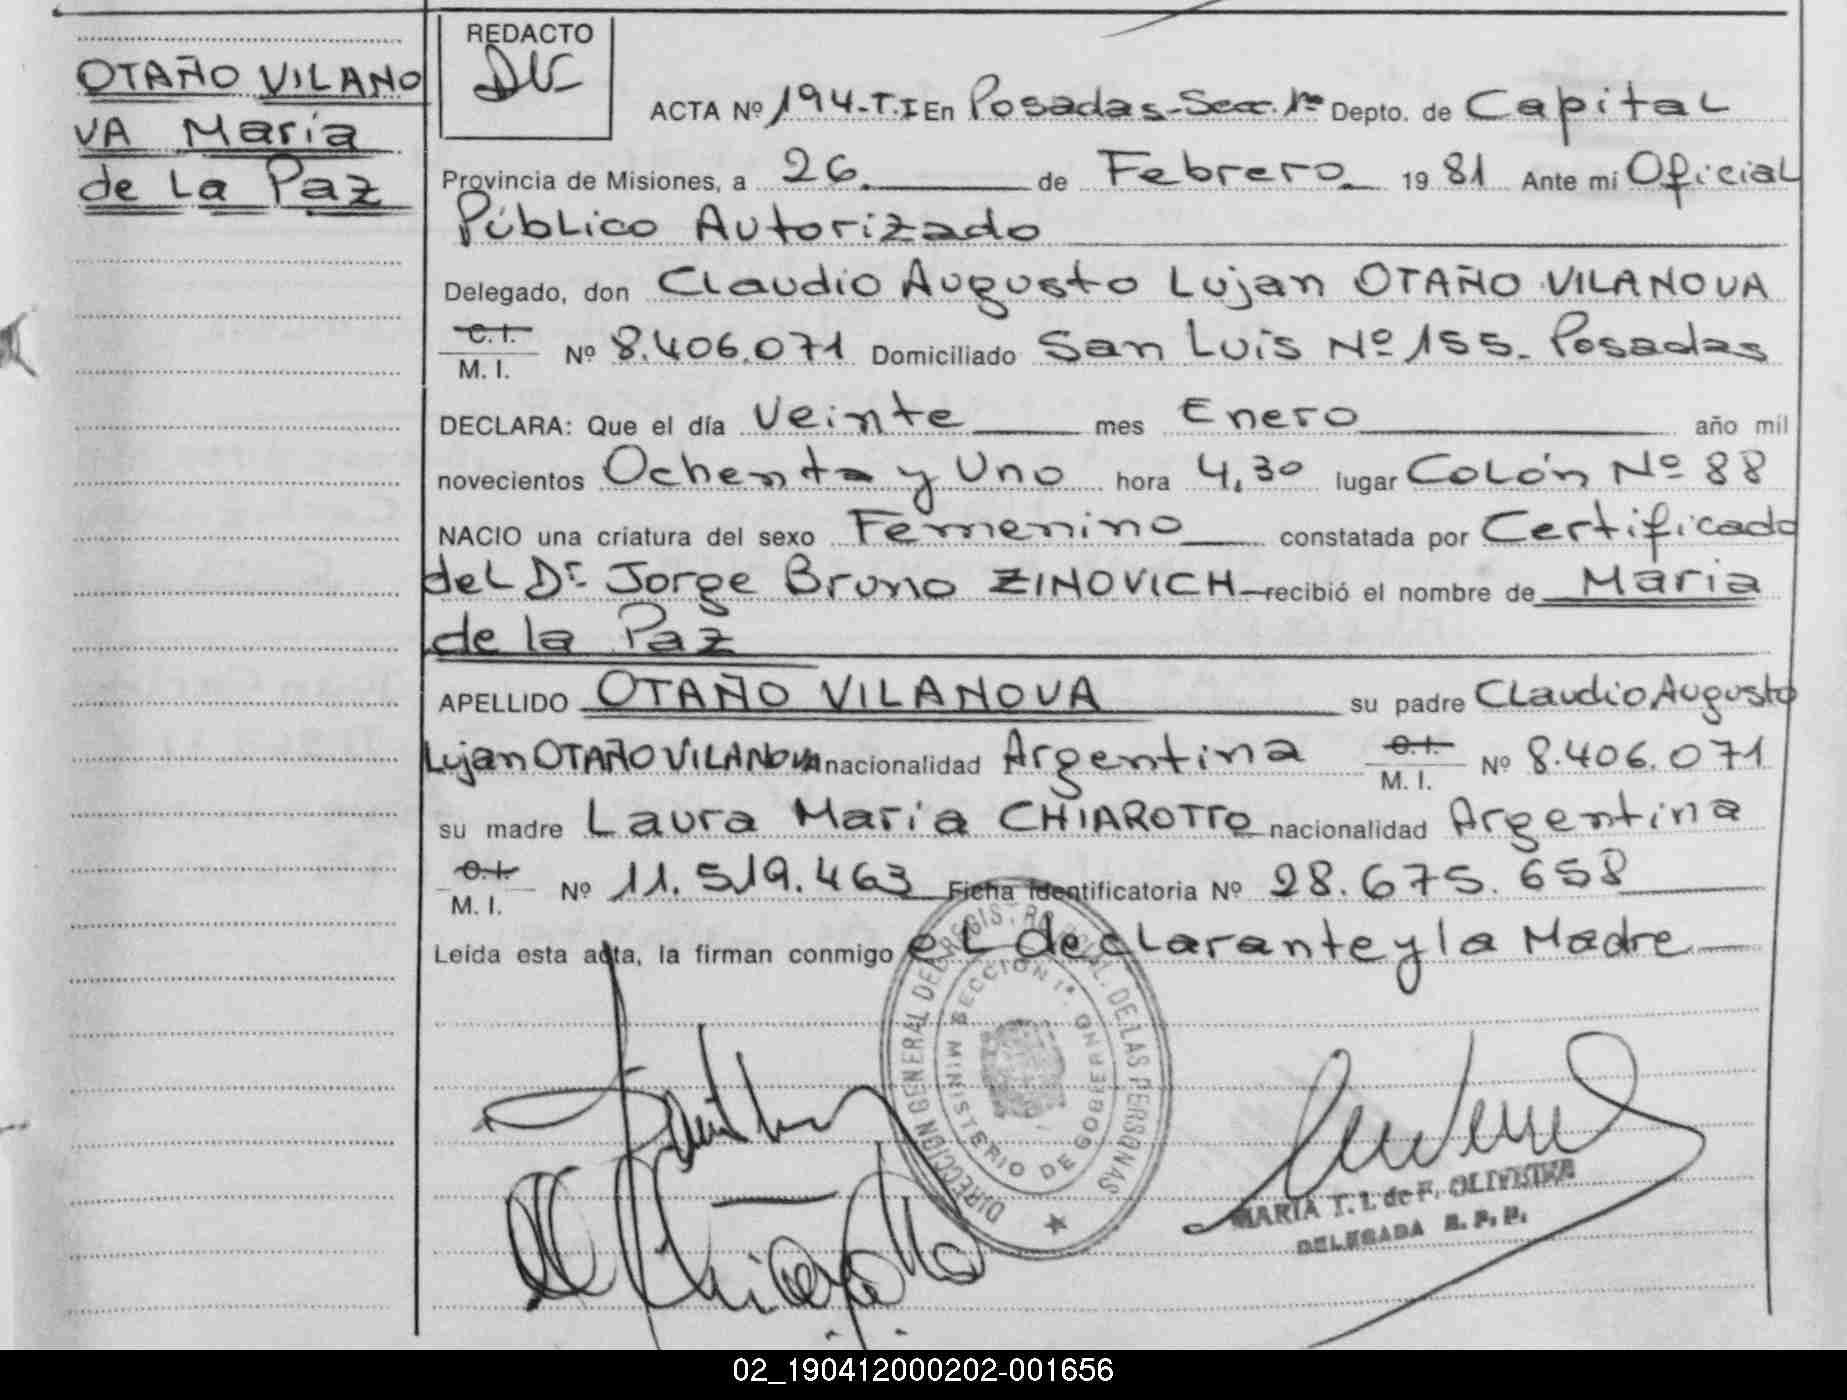 OTAÑO VILANO
VA María
de La Paz
REDACTO
ACTA Nº 194-T.I En Posadas-Sec. 1ª Depto. de Capital
Provincia de Misiones, a 26 de Febrero 19 81 Ante mi Oficial
Público Autorizado
Delegado, don Claudio Augusto Lujan OTAÑO VILANOVA
C. I.
M. I. Nº 8.406.071 Domiciliado San Luis Nº 155. Posadas
DECLARA: Que el día Veinte mes Enero año mil
novecientos Ochenta y Uno hora 4,30 lugar Colón Nº 88
NACIO una criatura del sexo Femenino constatada por Certificado
del Dr Jorge Bruno ZINOVICH recibió el nombre de Maria
de la Paz
APELLIDO OTAÑO VILANOVA su padre Claudio Augusto
Lujan OTAÑO VILANOVA nacionalidad Argentina C.I.
M. I. Nº 8.406.071
su madre Laura Maria CHIAROTTO nacionalidad Argentina
C.I.
M. I. Nº 11.519.463 Ficha identificatoria Nº 28.675.658
Leída esta acta, la firman conmigo el declarante y la Madre
DIRECCION GENERAL DEL REGISTRO PCIAL. DE LAS PERSONAS
SECCION 1ª.
MINISTERIO DE GOBIERNO
MARIA T. I. de F. OLIVEIRA
DELEGADA R. P. P.
02_190412000202-001656